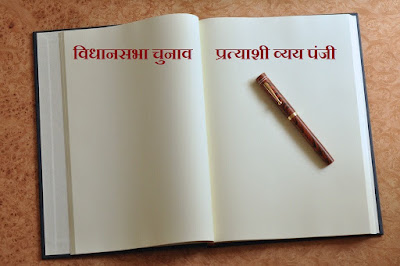 विधानसभा चुनाव
प्रत्याशी व्यय पंजी